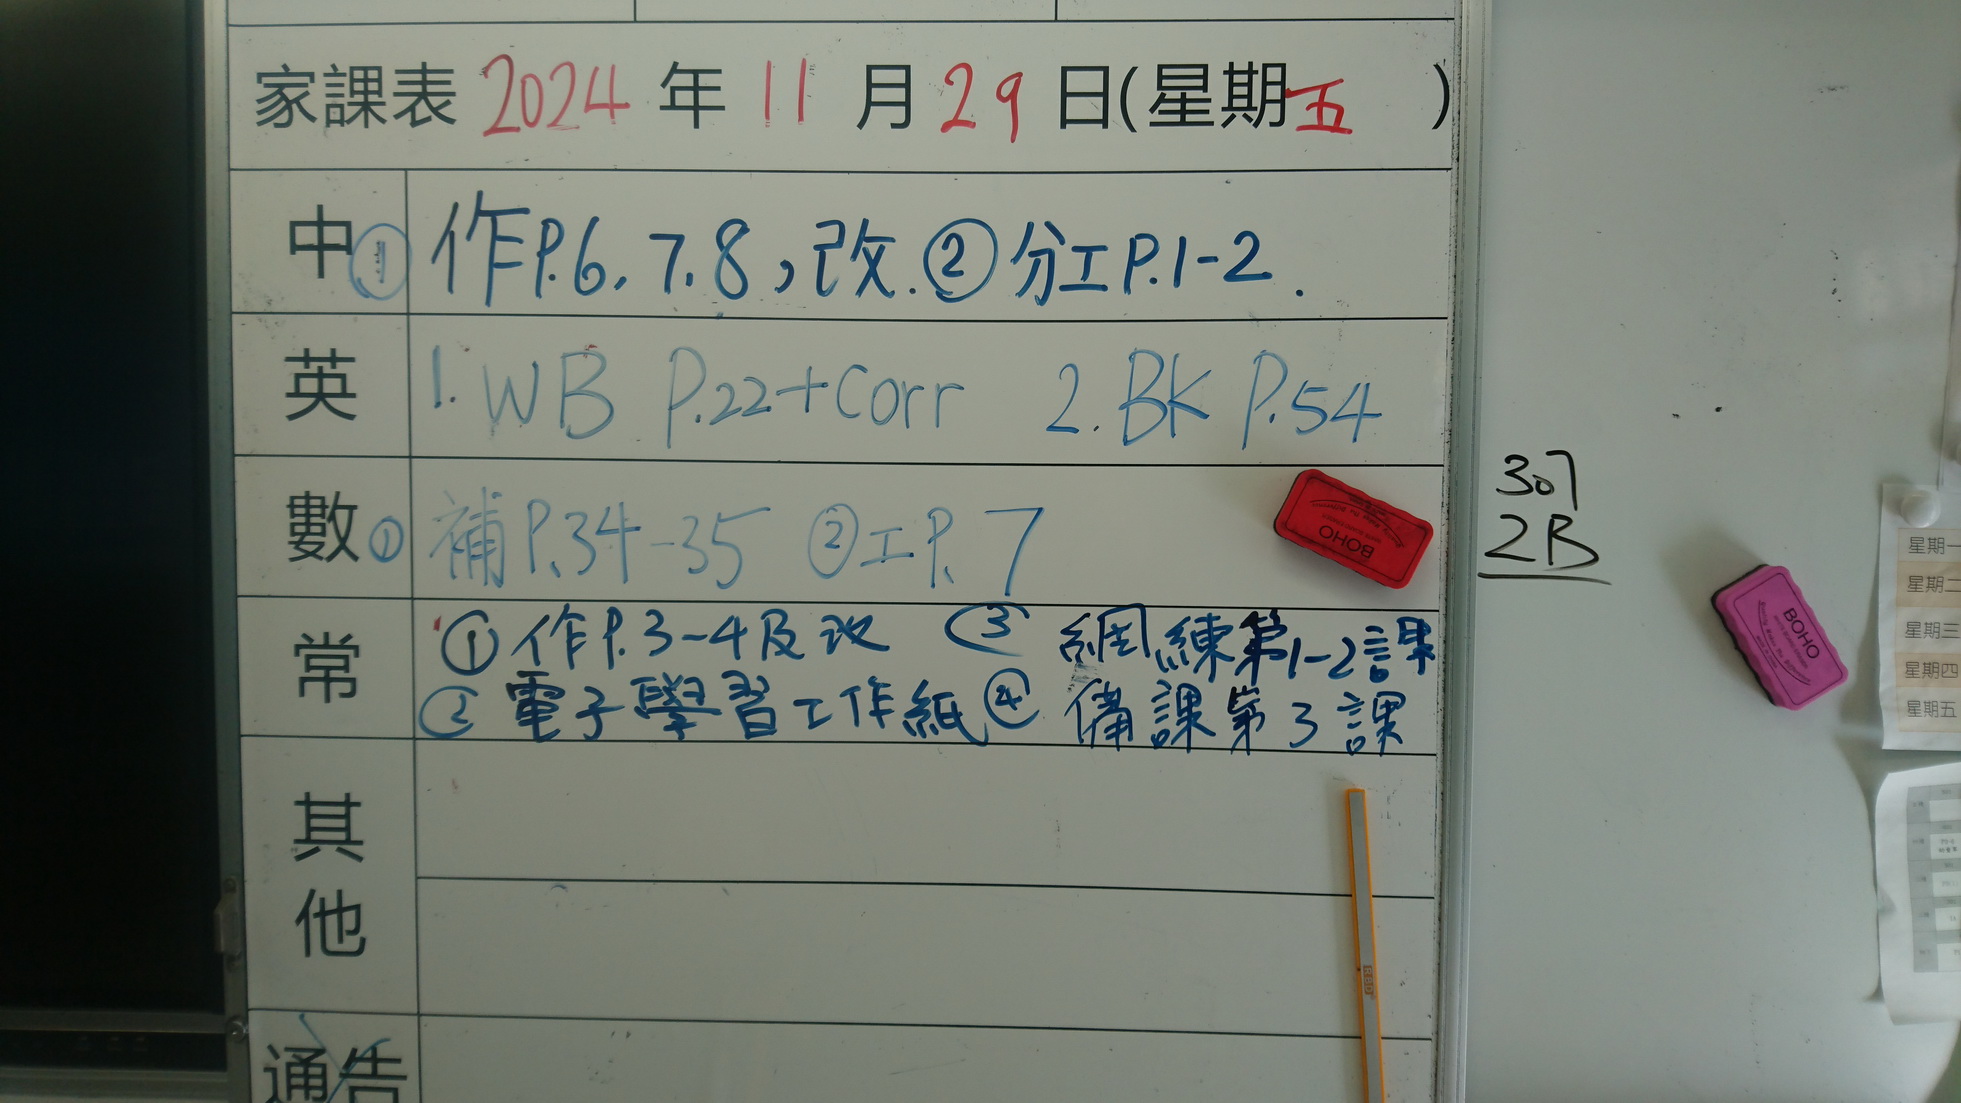 家課表 2024 年 11 月 29 日(星期五 )
中 ① 作P.6, 7, 8, 改. ② 分工P.1-2.
英 1. WB P.22+Corr 2. BK P.54
數 ① 補P.34-35 ②工P. 7
常 ① 作P.3-4及改 ③ 網練第1-2課
② 電子學習工作紙 ④ 備課第3課
其他
通告
BOHO
307
2B
BOHO
星期一
星期二
星期三
星期四
星期五